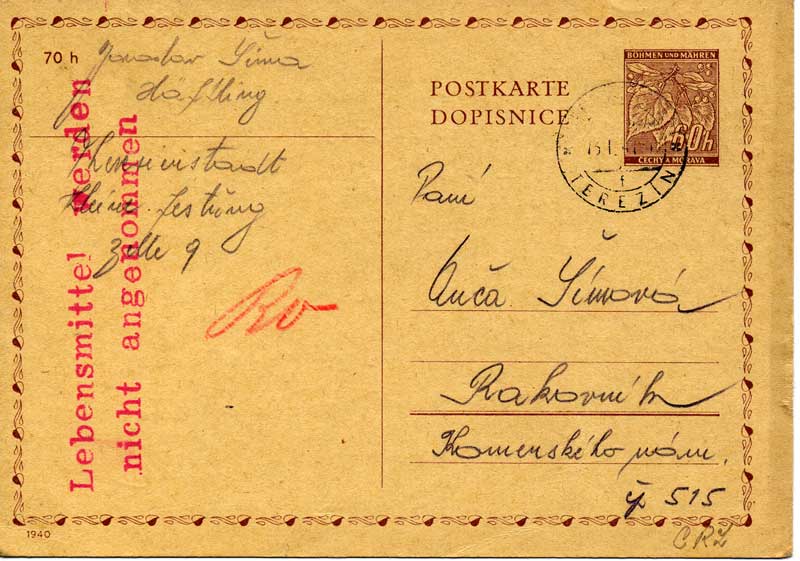 70 h
Jaroslav Šíma
Häftling
Theresienstadt
Kleine Festung
Zelle 9
Lebensmittel werden
nicht angenommen
POSTKARTE
DOPISNICE
BÖHMEN UND MÄHREN
60h
ČECHY A MORAVA
TEREZÍN
Paní
Anča Šímová
Rakovník
Komenského nám.
čp 515
1940